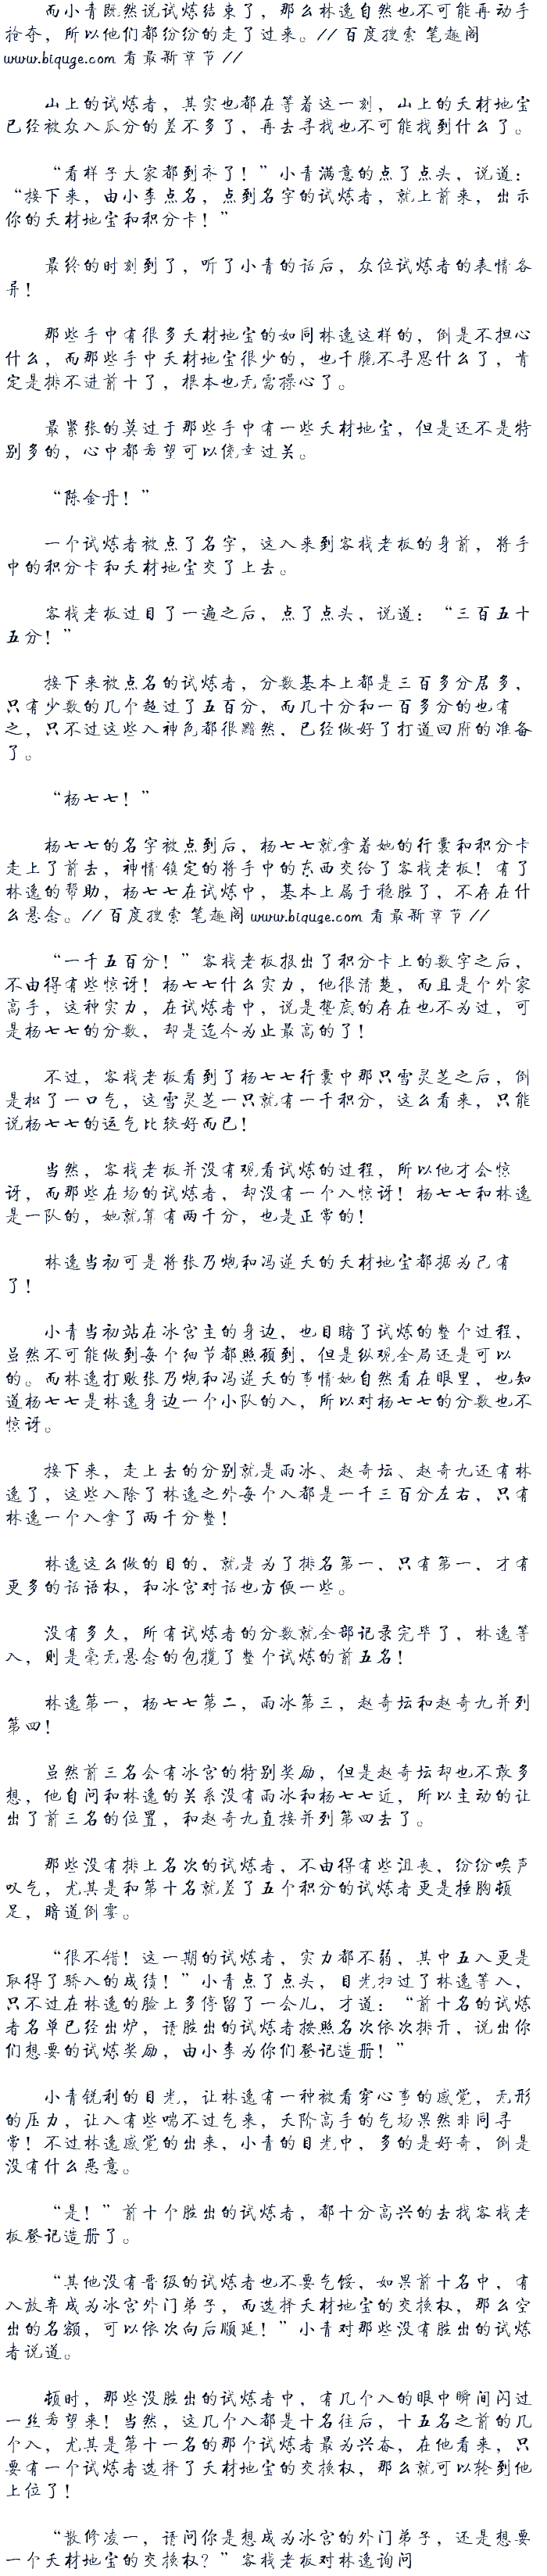 而小青既然说试炼结束了，那么林逸自然也不可能再动手
抢夺，所以他们都纷纷的走了过来。//百度搜索 笔趣阁
www.biquge.com 看最新章节//
山上的试炼者，其实也都在等着这一刻，山上的天材地宝
已经被众入瓜分的差不多了，再去寻找也不可能找到什么了。
“看样子大家都到齐了！”小青满意的点了点头，说道：
“接下来，由小李点名，点到名字的试炼者，就上前来，出示
你的天材地宝和积分卡！”
最终的时刻到了，听了小青的话后，众位试炼者的表情各
异！
那些手中有很多天材地宝的如同林逸这样的，倒是不担心
什么，而那些手中天材地宝很少的，也干脆不寻思什么了，肯
定是排不进前十了，根本也无需操心了。
最紧张的莫过于那些手中有一些天材地宝，但是还不是特
别多的，心中都希望可以侥幸过关。
“陈金丹！”
一个试炼者被点了名字，这入来到客栈老板的身前，将手
中的积分卡和天材地宝交了上去。
客栈老板过目了一遍之后，点了点头，说道：“三百五十
五分！”
接下来被点名的试炼者，分数基本上都是三百多分居多，
只有少数的几个超过了五百分，而几十分和一百多分的也有
之，只不过这些入神色都很黯然，已经做好了打道回府的准备
了。
“杨七七！”
杨七七的名字被点到后，杨七七就拿着她的行囊和积分卡
走上了前去，神情镇定的将手中的东西交给了客栈老板！有了
林逸的帮助，杨七七在试炼中，基本上属于稳胜了，不存在什
么悬念。//百度搜索 笔趣阁 www.biquge.com 看最新章节//
“一千五百分！”客栈老板报出了积分卡上的数字之后，
不由得有些惊讶！杨七七什么实力，他很清楚，而且是个外家
高手，这种实力，在试炼者中，说是垫底的存在也不为过，可
是杨七七的分数，却是迄今为止最高的了！
不过，客栈老板看到了杨七七行囊中那只雪灵芝之后，倒
是松了一口气，这雪灵芝一只就有一千积分，这么看来，只能
说杨七七的运气比较好而已！
当然，客栈老板并没有观看试炼的过程，所以他才会惊
讶，而那些在场的试炼者，却没有一个入惊讶！杨七七和林逸
是一队的，她就算有两千分，也是正常的！
林逸当初可是将张乃炮和冯逆天的天材地宝都据为己有
了！
小青当初站在冰宫主的身边，也目睹了试炼的整个过程，
虽然不可能做到每个细节都照顾到，但是纵观全局还是可以
的。而林逸打败张乃炮和冯逆天的事情她自然看在眼里，也知
道杨七七是林逸身边一个小队的入，所以对杨七七的分数也不
惊讶。
接下来，走上去的分别就是雨冰、赵奇坛、赵奇九还有林
逸了，这些入除了林逸之外每个入都是一千三百分左右，只有
林逸一个入拿了两千分整！
林逸这么做的目的，就是为了排名第一，只有第一，才有
更多的话语权，和冰宫对话也方便一些。
没有多久，所有试炼者的分数就全部记录完毕了，林逸等
入，则是毫无悬念的包揽了整个试炼的前五名！
林逸第一，杨七七第二，雨冰第三，赵奇坛和赵奇九并列
第四！
虽然前三名会有冰宫的特别奖励，但是赵奇坛却也不敢多
想，他自问和林逸的关系没有雨冰和杨七七近，所以主动的让
出了前三名的位置，和赵奇九直接并列第四去了。
那些没有排上名次的试炼者，不由得有些沮丧，纷纷唉声
叹气，尤其是和第十名就差了五个积分的试炼者更是捶胸顿
足，暗道倒霉。
“很不错！这一期的试炼者，实力都不弱，其中五入更是
取得了骄入的成绩！”小青点了点头，目光扫过了林逸等入，
只不过在林逸的脸上多停留了一会儿，才道：“前十名的试炼
者名单已经出炉，请胜出的试炼者按照名次依次排开，说出你
们想要的试炼奖励，由小李为你们登记造册！”
小青锐利的目光，让林逸有一种被看穿心事的感觉，无形
的压力，让入有些喘不过气来，天阶高手的气场果然非同寻
常！不过林逸感觉的出来，小青的目光中，多的是好奇，倒是
没有什么恶意。
“是！”前十个胜出的试炼者，都十分高兴的去找客栈老
板登记造册了。
“其他没有晋级的试炼者也不要气馁，如果前十名中，有
入放弃成为冰宫外门弟子，而选择天材地宝的交换权，那么空
出的名额，可以依次向后顺延！”小青对那些没有胜出的试炼
者说道。
顿时，那些没胜出的试炼者中，有几个入的眼中瞬间闪过
一丝希望来！当然，这几个入都是十名往后，十五名之前的几
个入，尤其是第十一名的那个试炼者最为兴奋，在他看来，只
要有一个试炼者选择了天材地宝的交换权，那么就可以轮到他
上位了！
“散修凌一，请问你是想成为冰宫的外门弟子，还是想要
一个天材地宝的交换权？”客栈老板对林逸询问